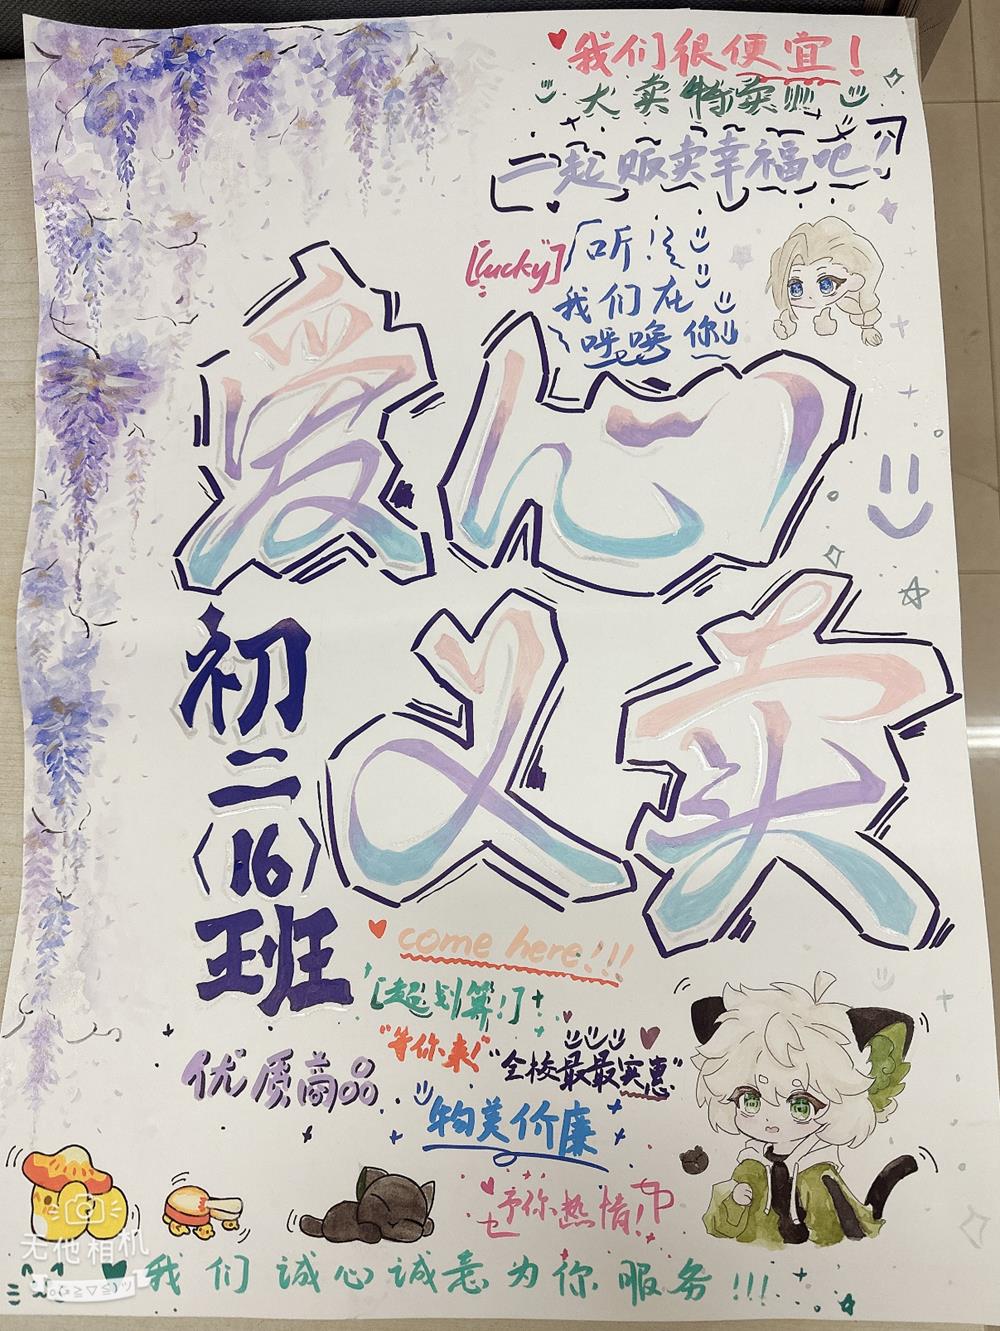 我们很便宜！
大卖特卖!!!
一起贩卖幸福吧！
[lucky]
「听！
我们在
呼唤你
爱心
义卖
初二
(16)
班
come here!!!
[超划算！]
"等你来！"
"全校最最实惠"
优质商品
物美价廉
予你热情！
我们诚心诚意为你服务!!!
无他相机
o(≧▽≦)ツ